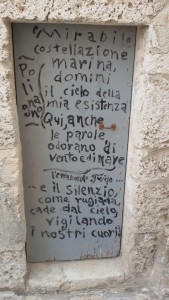 Mirabile
costellazione
marina,
domini
il cielo della
mia esistenza
Qui, anche
le parole
odorano di
vento e di mare
e il silenzio,
come rugiada,
cade dal cielo,
vigilando
i nostri cuori!
Polignano